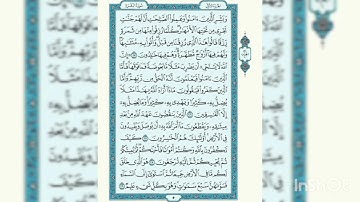 سُورَةُ البَقَرَةِ
الجُزْءُ الأَوَّلُ
وَبَشِّرِ ٱلَّذِينَ ءَامَنُواْ وَعَمِلُواْ ٱلصَّٰلِحَٰتِ أَنَّ لَهُمۡ جَنَّٰتٖ
تَجۡرِي مِن تَحۡتِهَا ٱلۡأَنۡهَٰرُۖ كُلَّمَا رُزِقُواْ مِنۡهَا مِن ثَمَرَةٖ
رِّزۡقٗا قَالُواْ هَٰذَا ٱلَّذِي رُزِقۡنَا مِن قَبۡلُۖ وَأُتُواْ بِهِۦ مُتَشَٰبِهٗاۖ
وَلَهُمۡ فِيهَآ أَزۡوَٰجٞ مُّطَهَّرَةٞۖ وَهُمۡ فِيهَا خَٰلِدُونَ ٢٥ ۞ إِنَّ ٱللَّهَ
لَا يَسۡتَحۡيِۦٓ أَن يَضۡرِبَ مَثَلٗا مَّا بَعُوضَةٗ فَمَا فَوۡقَهَاۚ فَأَمَّا
ٱلَّذِينَ ءَامَنُواْ فَيَعۡلَمُونَ أَنَّهُ ٱلۡحَقُّ مِن رَّبِّهِمۡۖ وَأَمَّا
ٱلَّذِينَ كَفَرُواْ فَيَقُولُونَ مَاذَآ أَرَادَ ٱللَّهُ بِهَٰذَا مَثَلٗاۘ
يُضِلُّ بِهِۦ كَثِيرٗا وَيَهۡدِي بِهِۦ كَثِيرٗاۚ وَمَا يُضِلُّ بِهِۦٓ
إِلَّا ٱلۡفَٰسِقِينَ ٢٦ ٱلَّذِينَ يَنقُضُونَ عَهۡدَ ٱللَّهِ مِنۢ بَعۡدِ
مِيثَٰقِهِۦ وَيَقۡطَعُونَ مَآ أَمَرَ ٱللَّهُ بِهِۦٓ أَن يُوصَلَ وَيُفۡسِدُونَ
فِي ٱلۡأَرۡضِۚ أُوْلَٰٓئِكَ هُمُ ٱلۡخَٰسِرُونَ ٢٧ كَيۡفَ
تَكۡفُرُونَ بِٱللَّهِ وَكُنتُمۡ أَمۡوَٰتٗا فَأَحۡيَٰكُمۡۖ ثُمَّ يُمِيتُكُمۡ
ثُمَّ يُحۡيِيكُمۡ ثُمَّ إِلَيۡهِ تُرۡجَعُونَ ٢٨ هُوَ ٱلَّذِي خَلَقَ
لَكُم مَّا فِي ٱلۡأَرۡضِ جَمِيعٗا ثُمَّ ٱسۡتَوَىٰٓ إِلَى ٱلسَّمَآءِ
فَسَوَّىٰهُنَّ سَبۡعَ سَمَٰوَٰتٖۚ وَهُوَ بِكُلِّ شَيۡءٍ عَلِيمٞ ٢٩
٥
InShOt